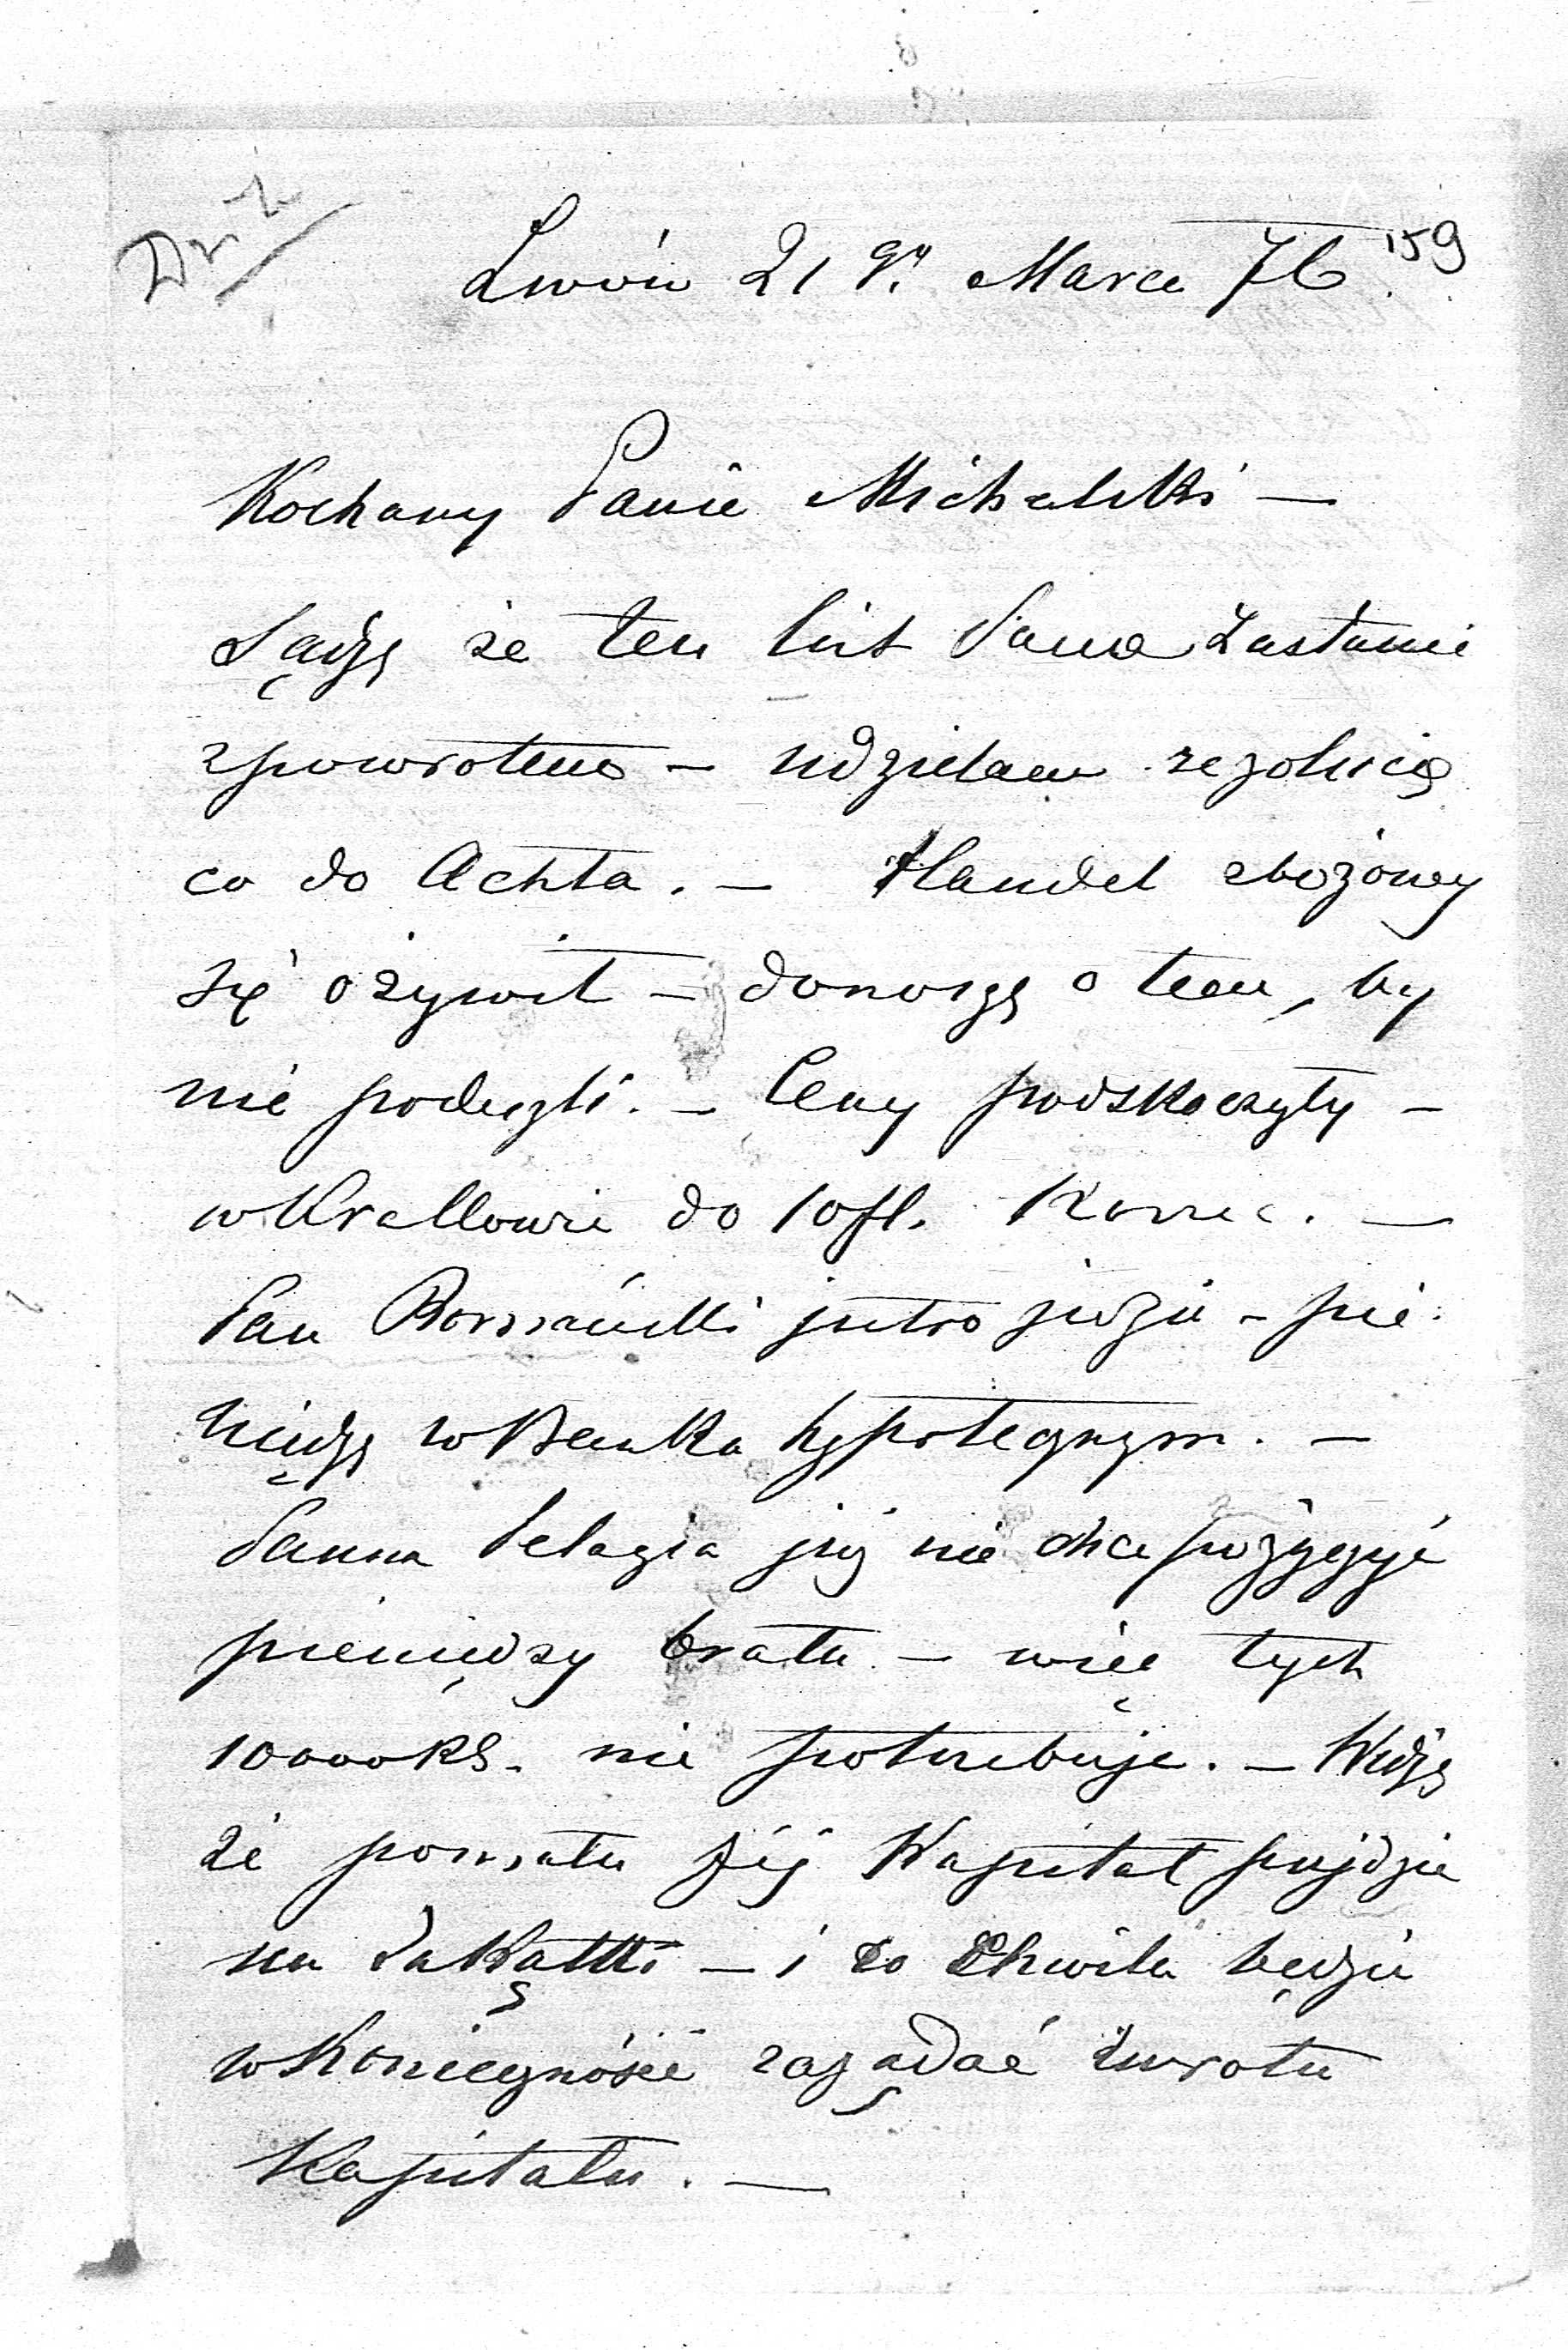 Lwów 21 go Marca 76. 159
Kochany Panie Michalski —
Sądzę że ten list Pana zastanie
zpowrotem — udzielam rezolucię
co do Achta. — Handel zbożowy
się ożywił — donoszę o tem, by
nie podeszli. — Ceny podskoczyły —
w Krakowie do 10 fl. Korzec. —
Pan jutro jedzie — pie-
niędzy w Banku hypotecznym. —
Panna Pelagia już nie chce pożyczyć
pieniędzy bratu — więc tych
10000 Rs. nie potrzebuje. — Widzę
że pomału jéj Kapitał pójdzie
na Zakąttki — i co chwila będzie
w Konieczności zażądać zwrotu
Kapitału. —